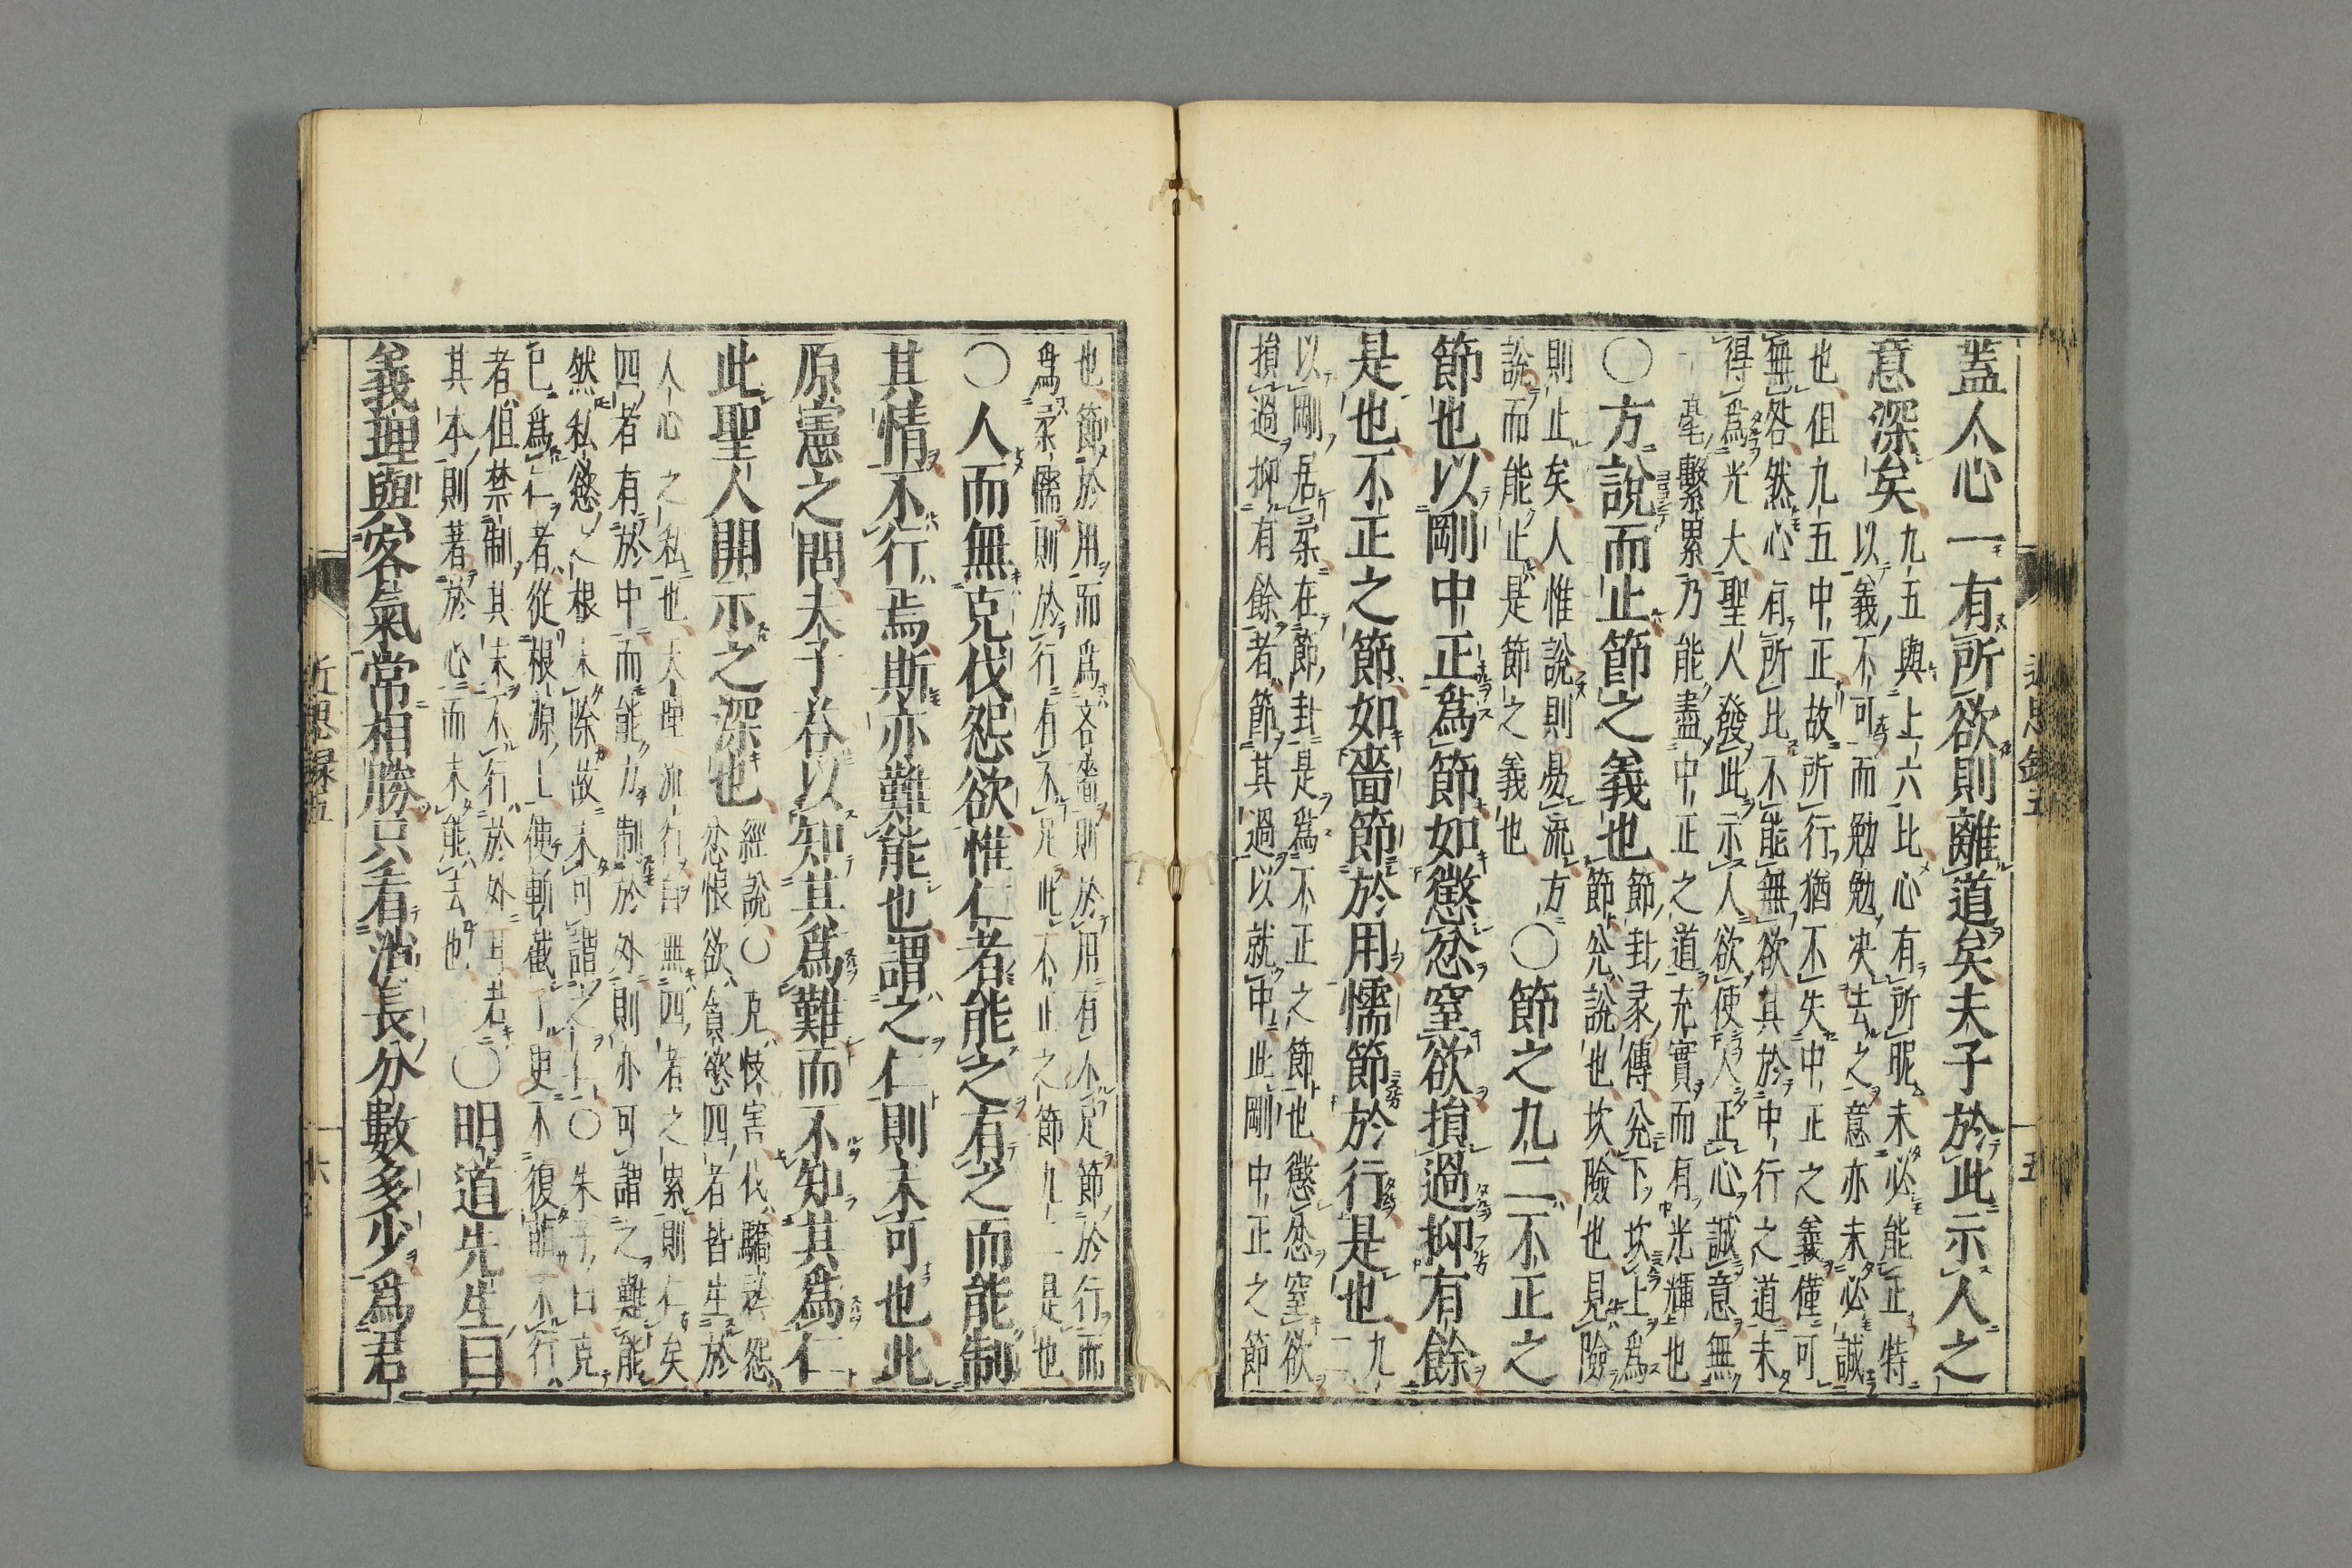 蓋人心一有所欲則離道矣夫子於此示人之
意深矣
九五與上六比心有所昵未必能正特
以義不可而勉勉決去之意亦未必誠
也但九五中正故所行猶不失中正之義僅可
無咎然心有所比不能無欲其於中行之道未
得爲光大聖人發此示人欲使人正心誠意無
一毫繫累乃能盡中正之道充實而有光輝也
〇方說而止節之義也
節卦彖傳兌下坎上爲
節兌說也坎險也見險
則止矣人惟說則易流方
說而能止是節之義也
〇節之九二不正之
節也以剛中正爲節如懲忿窒欲損過抑有餘
是也不正之節如嗇節於用懦節於行是也
九
二
以剛居柔在節卦是爲不正之節也懲忿窒欲
損過抑有餘者節其過以就中此剛中正之節
也節於用而爲吝嗇則於用有不足節於行而
爲柔懦則於行有不足此不正之節九二是也
〇人而無克伐怨欲惟仁者能之有之而能制
其情不行焉斯亦難能也謂之仁則未可也此
原憲之問夫子答以知其爲難而不知其爲仁
此聖人開示之深也
經說〇克忮害伐驕矜怨
忿恨欲貪慾四者皆生於
人心之私也天理流行自無四者之累則仁矣
四者有於中而能力制於外則亦可謂之難能
然私慾之根未除故未可謂之仁〇朱子曰克
己爲仁者從根源上便斬截了更不復萌不行
者但禁制其末不行於外耳若
其本則著於心而末能去也
〇明道先生曰
義理與客氣常相勝只看消長分數多少爲君
近思録五
五
近思録五
六